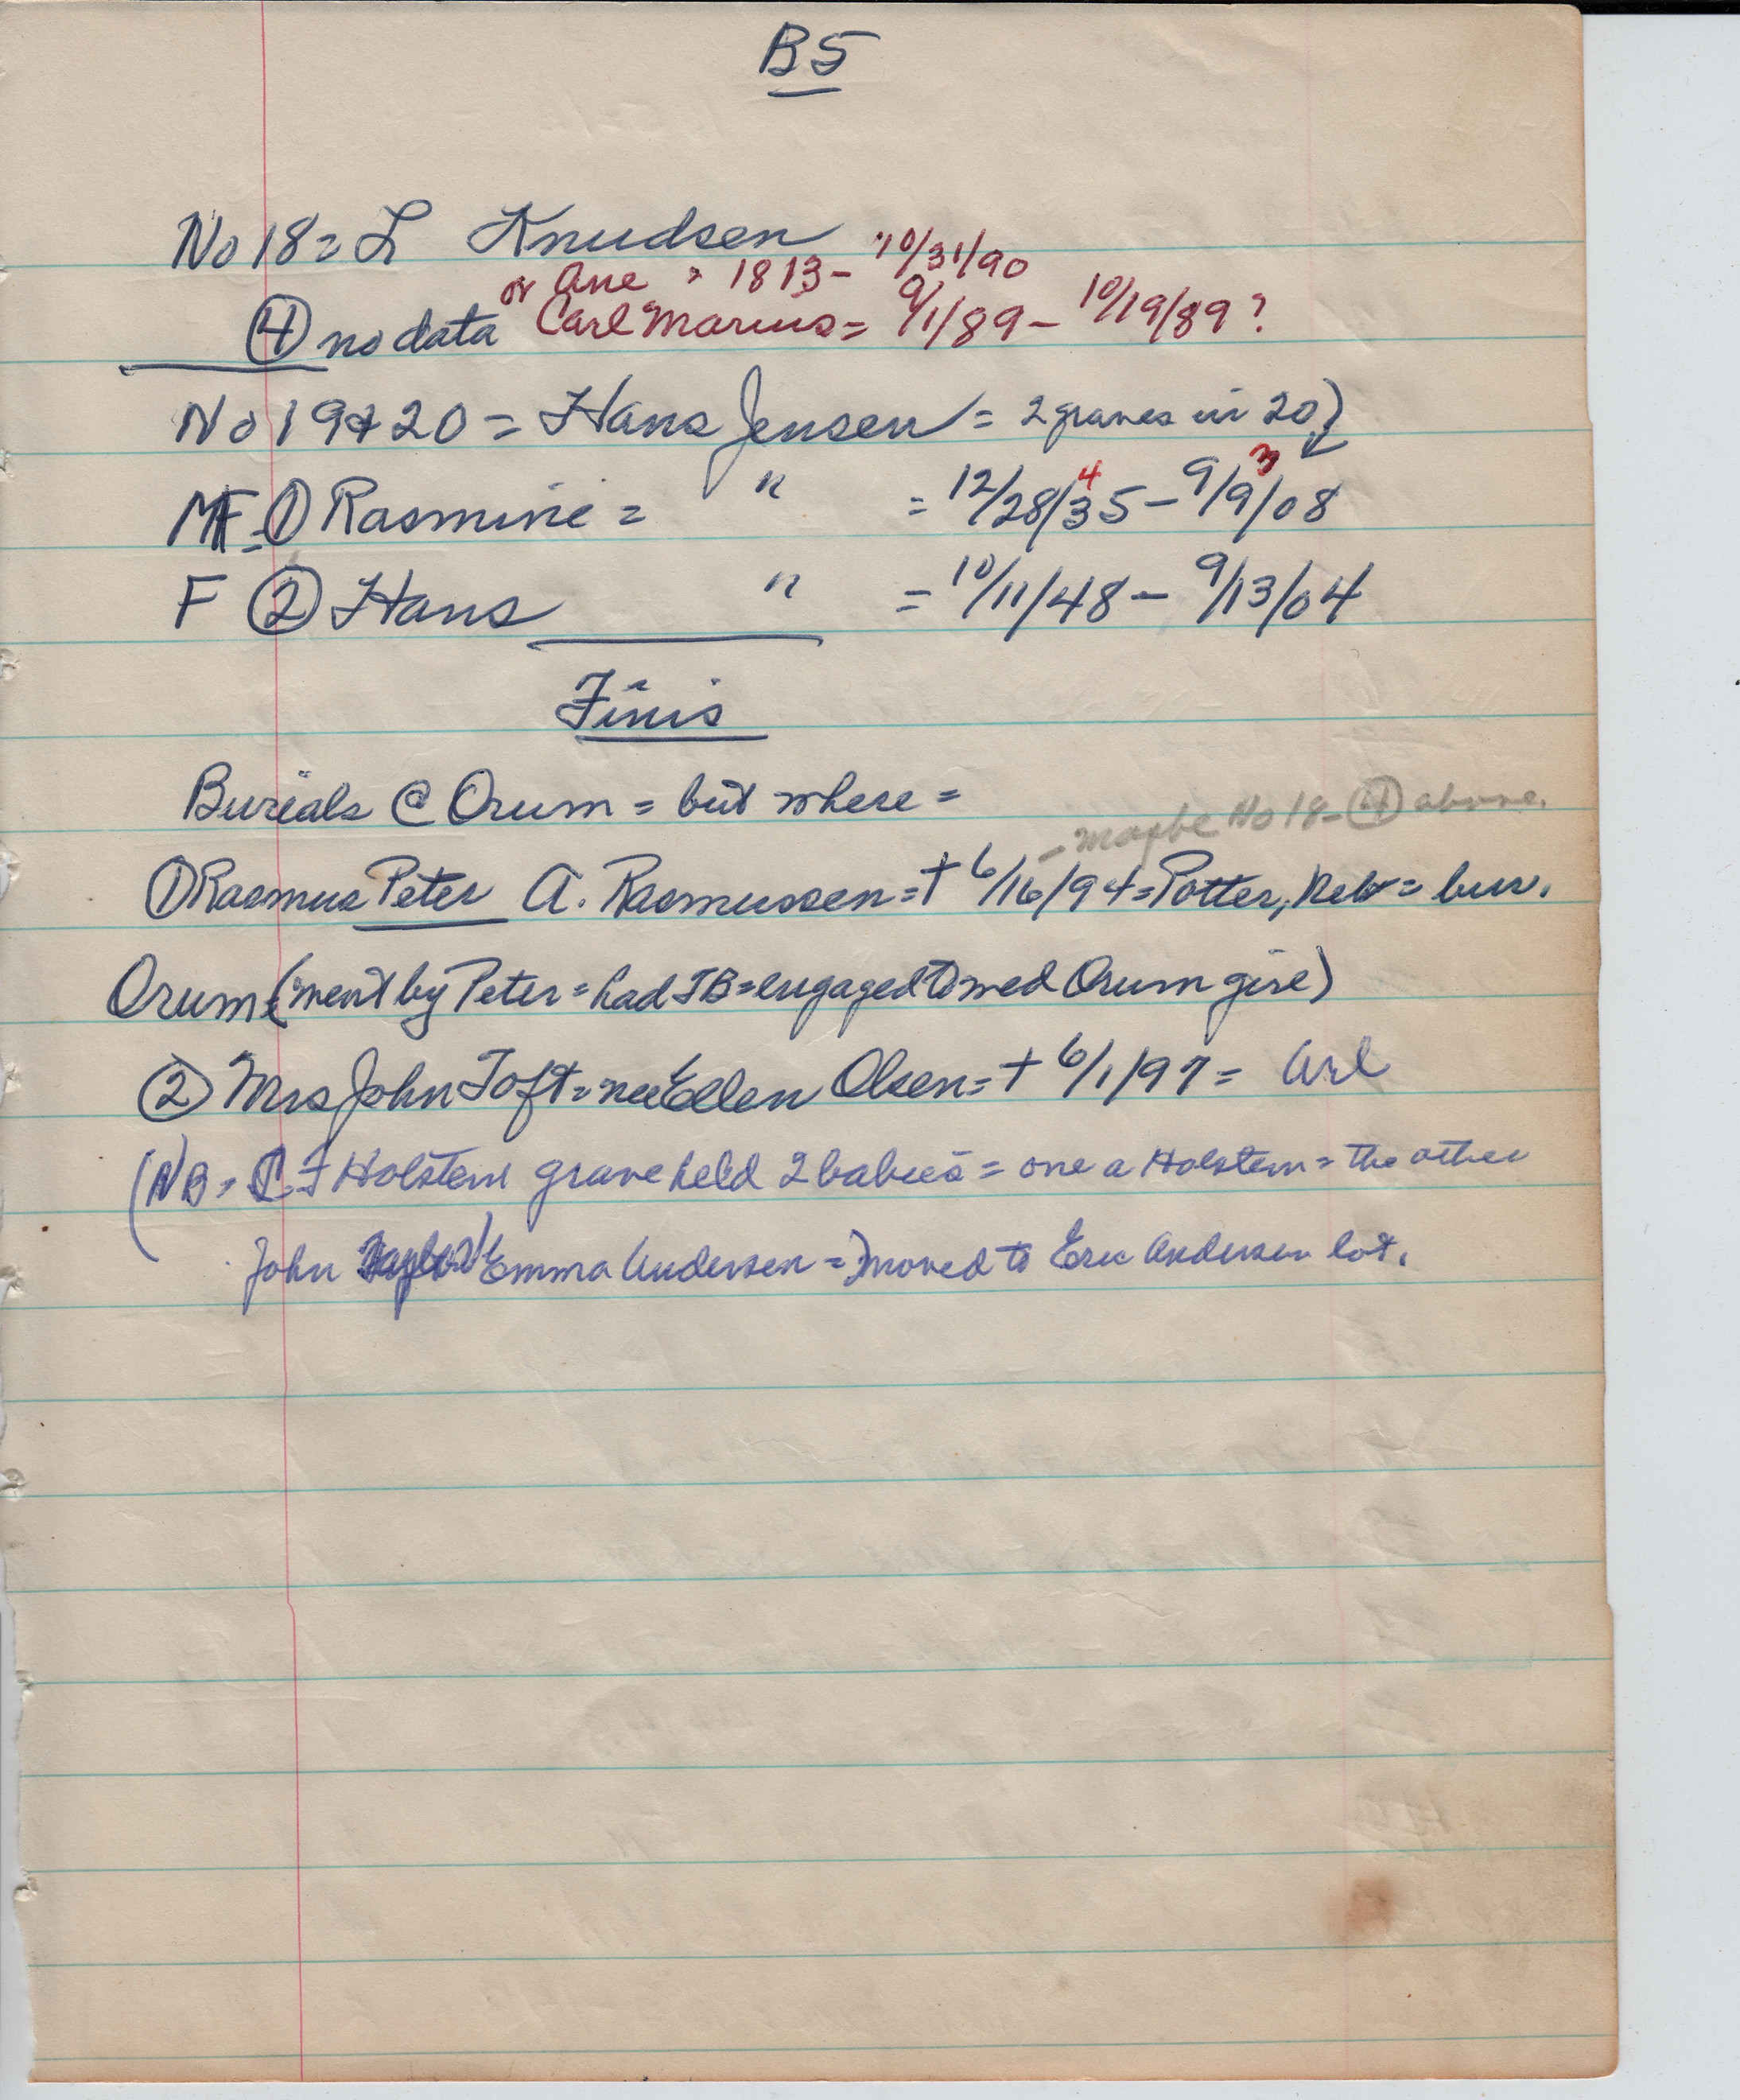 B5
No 18 = L Knudsen
or Ane " 1813 - 10/31/90
④ no data Carl Marius = 9/1/89 - 10/19/89?
No 19 & 20 = Hans Jensen = 2 graves in 20)
4 3
MF = ① Rasmine = " = 12/28/35 - 9/9/08
F ② Hans " = 10/11/48 - 9/13/04
Finis
Burials @ Orum = but where =
- maybe No 18 - ④ above.
① Rasmus Peter A. Rasmussen = † 6/16/94 = Potter, Neb = bur.
Orum (went by Peter = had TB = engaged to wed Orum girl)
② Mrs John Toft = nee Ellen Olsen = † 6/1/97 = Arl
(NB = F Holstein grave held 2 babies = one a Holstein = the other
John Emma Andersen =) moved to Eric Andersen lot.